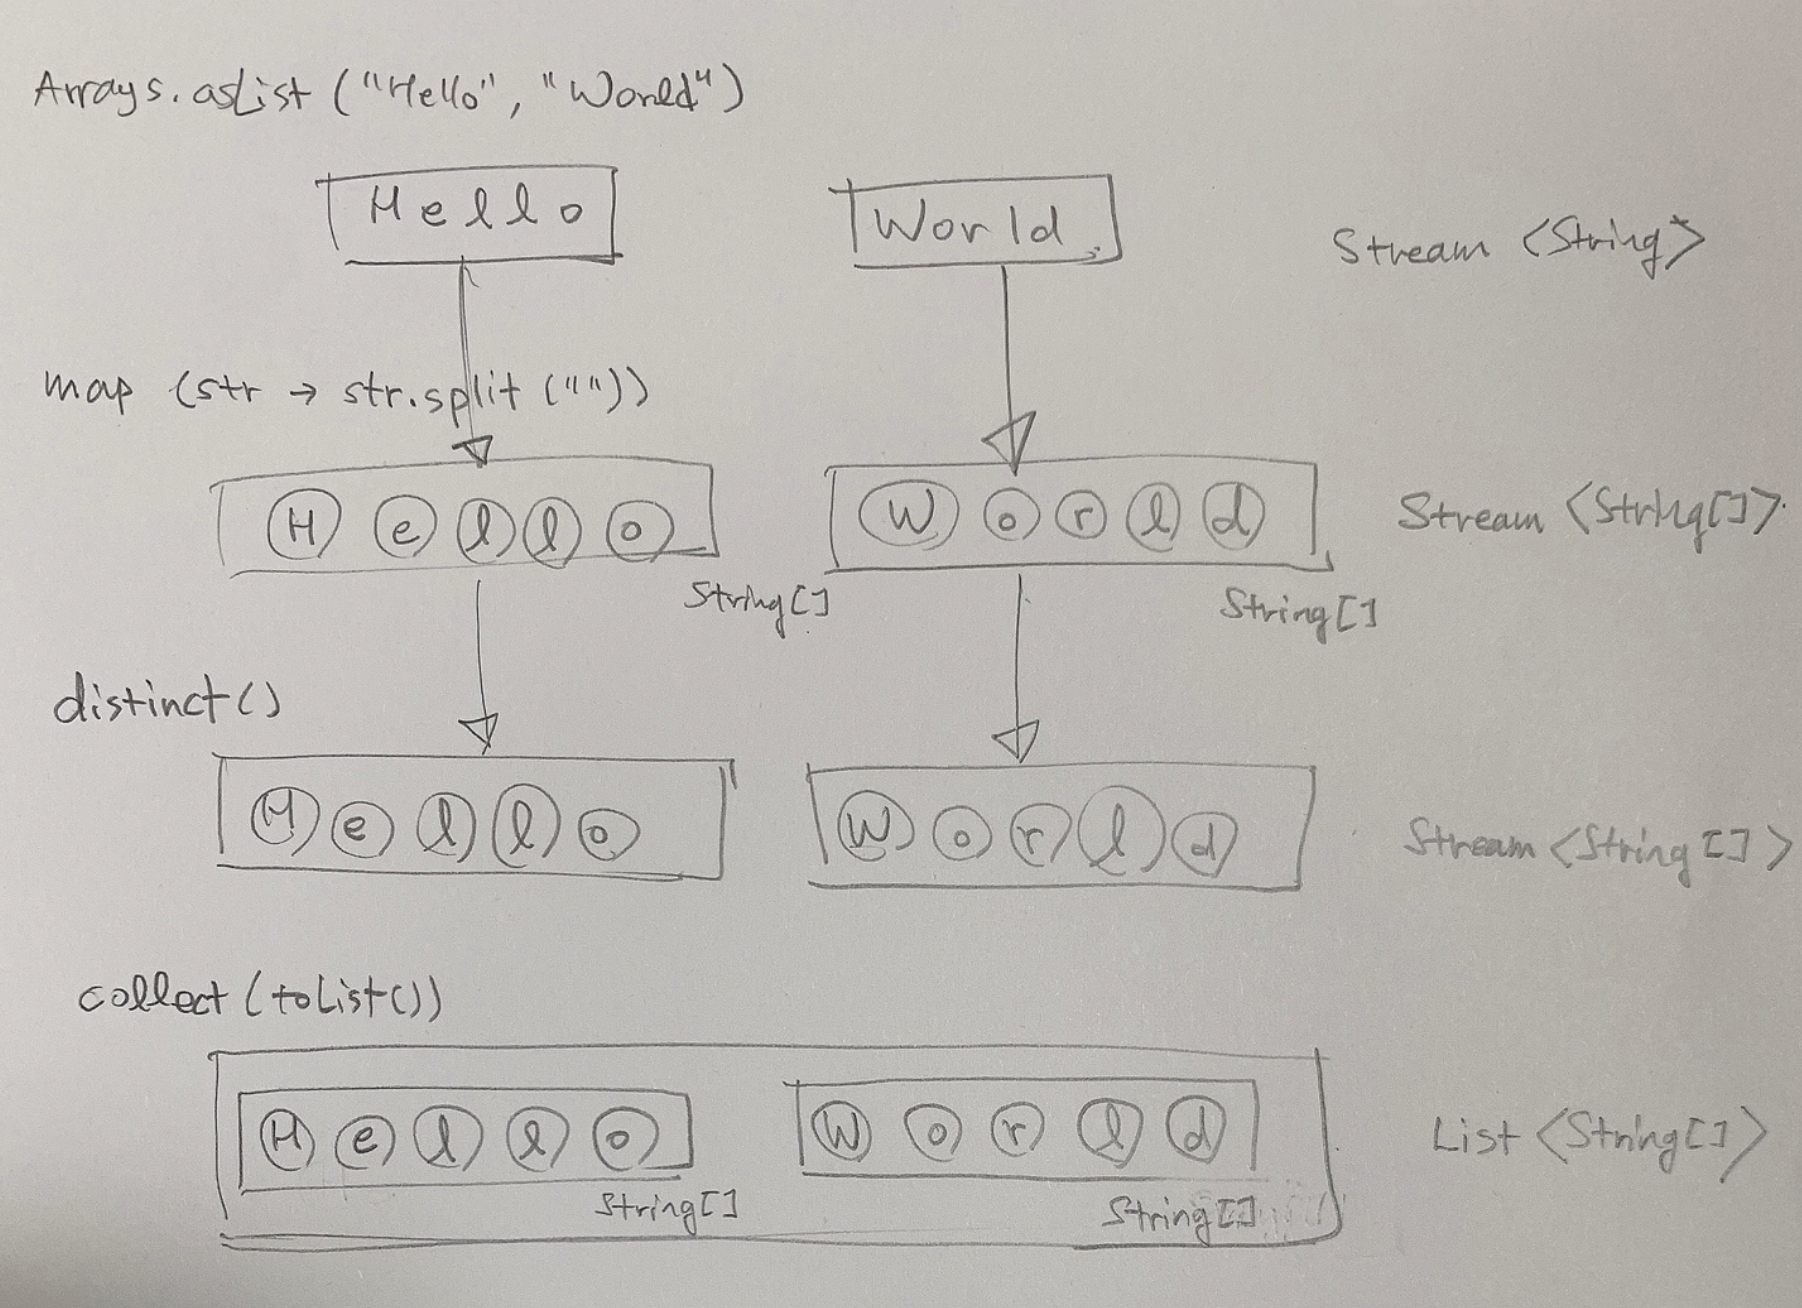 Arrays.asList ("Hello", "World")
Hello World Stream <String>
map (str → str.split (""))
H e l l o W o r l d Stream <String[]>
String[] String[]
distinct()
H e l l o W o r l d Stream <String[]>
collect (toList())
H e l l o W o r l d List <String[]>
String[] String[]